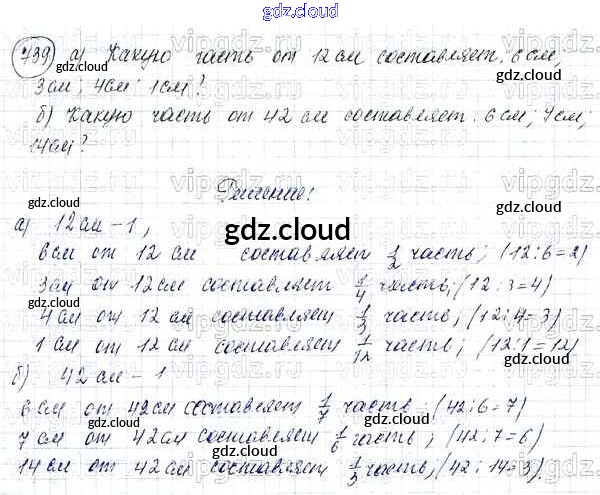 gdz.cloud
739 а) Какую часть от 12 см составляет: 6 см,
3 см; 4 см; 1 см?
б) Какую часть от 42 см составляет: 6 см; 7 см;
14 см?
Решение:
а) 12 см – 1,
6 см от 12 см составляет 1/2 часть; (12:6=2)
3 см от 12 см составляет 1/4 часть, (12:3=4)
4 см от 12 см составляет 1/3 часть, (12:4=3)
1 см от 12 см составляет 1/12 часть; (12:1=12)
б) 42 см – 1
6 см от 42 см составляет 1/7 часть; (42:6=7)
7 см от 42 см составляет 1/6 часть; (42:7=6)
14 см от 42 см составляет 1/3 часть; (42:14=3).